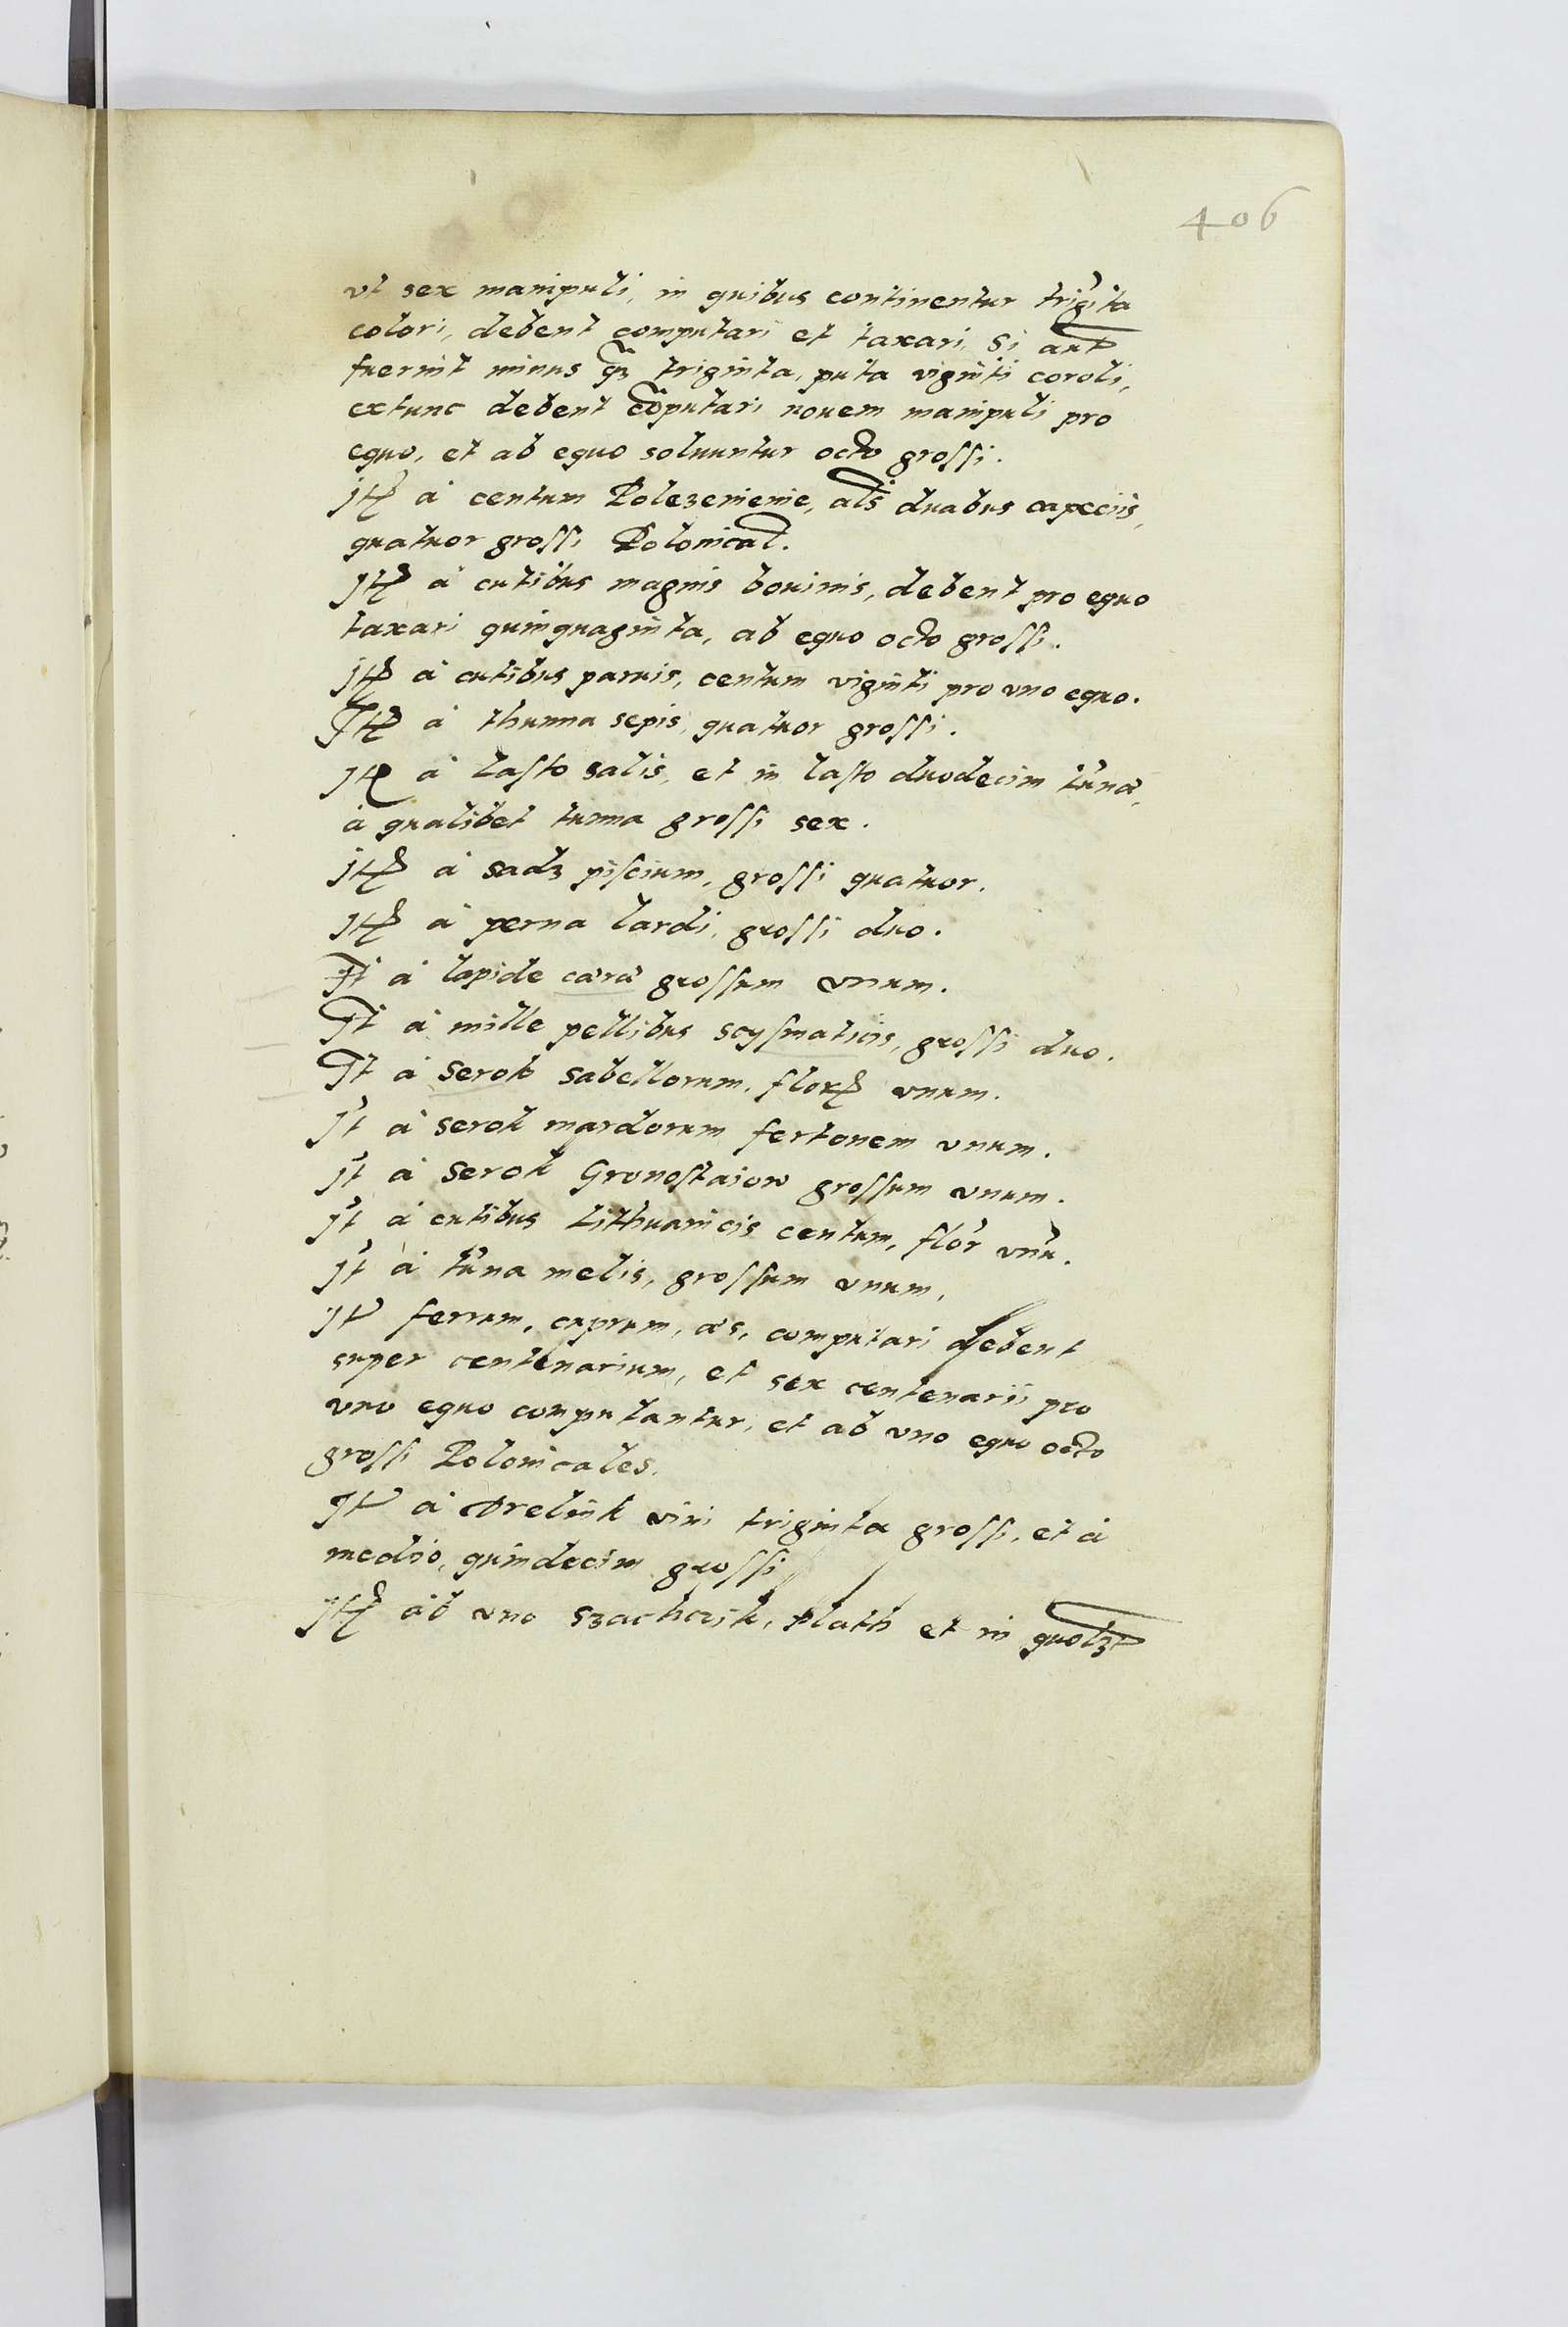 406
vt sex manipuli, in quibus continentur trigĩta
colori, debent computari et taxari, Si aut̃
fuerint minus qꝫ triginta, puta viginti coroli,
extunc debent cõputari nouem manipuli pro
equo, et ab equo soluuntur octo grossi.
jtẽ à centum Polezenienie, al̃s duabus capeciis,
quatuor grossi Polonical.
Jtẽ à cutibus magnis bouinis, debent pro equo
taxari quinquaginta, ab equo octo grossi.
jtẽ à cutibus paruis, centum viginti pro vno equo.
Jtẽ à thunna sepis, quatuor grossi.
jtẽ à lasto salis, et in lasto duodecim tũnæ,
à qualibet tunna grossi sex.
jtẽ à sadz piscium, grossi quatuor.
jtẽ à perna lardi, grossi duo.
Jt̃ à lapide cæræ grossum vnum.
Jt̃ à mille pellibus scysmaticis, grossi duo.
Jt̃ à Serok sabellorum, florẽ vnum.
jt̃ à serok mardorum fertonem vnum.
jt̃ à Serok Gronostaiow grossum vnum.
jt̃ à cutibus Lithuanicis centum, flor̃ vnũ.
jt̃ à tũna melis, grossum vnum.
jt̃ ferrum, cuprum, æs, computari debent
super centenarium, et sex centenarii pro
vno equo computantur, et ab vno equo octo
grossi Polonicales.
Jt̃ à Drelink vini triginta grossi, et à
medio, quindecim grossi
jtẽ ab vno szachczik, plath et in quolꝫt